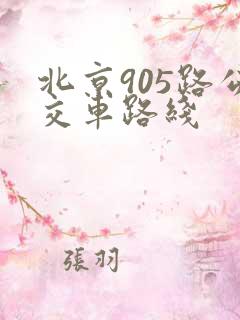 北京905路公
交车路线
張羽